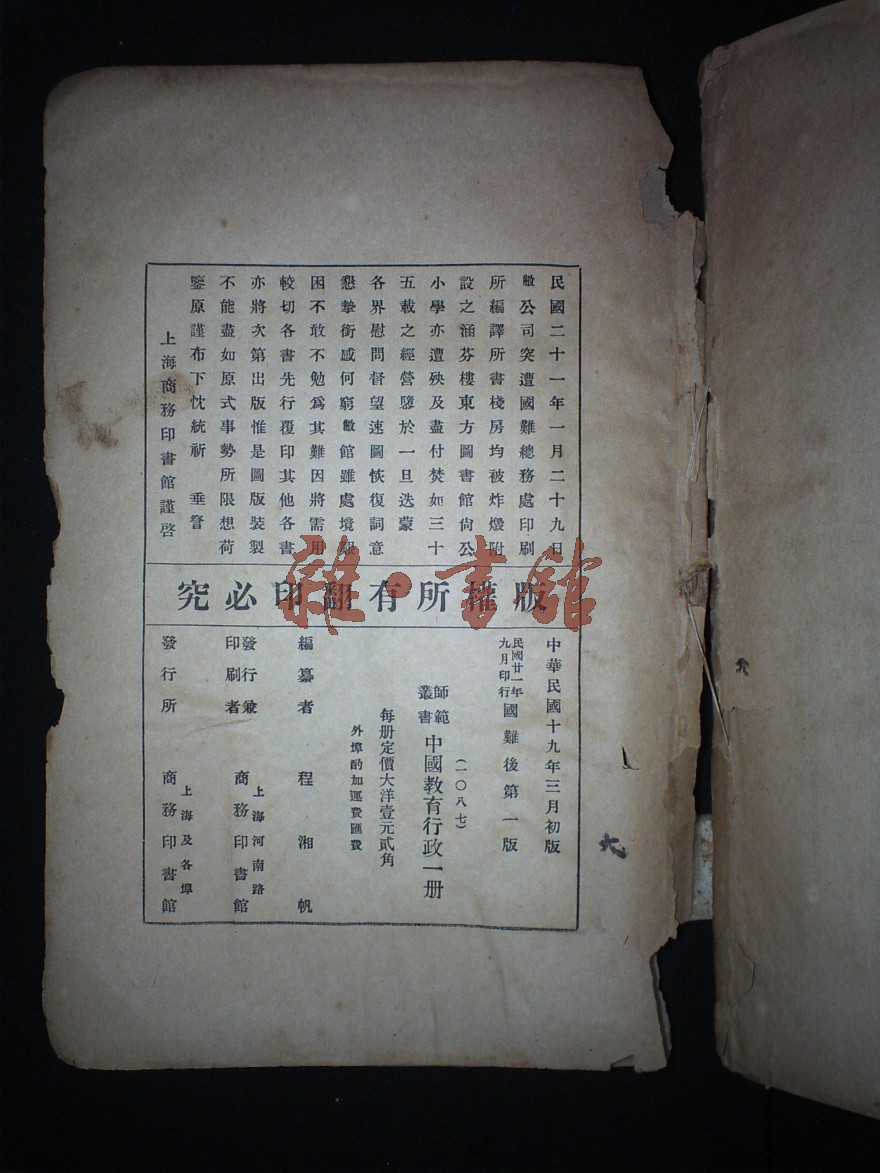 民國二十一年一月二十九日
敝公司突遭國難總務處印刷
所編譯所書棧房均被炸燬附
設之涵芬樓東方圖書館尙公
小學亦遭殃及盡付焚如三十
五載之經營隳於一旦迭蒙
各界慰問督望速圖恢復詞意
懇摯銜感何窮敝館雖處境艱
困不敢不勉爲其難因將需用
較切各書先行覆印其他各書
亦將次第出版惟是圖版裝製
不能盡如原式事勢所限想荷
鑒原謹布下忱統祈 垂詧
上海商務印書館謹啓
版權所有翻印必究
雜·書館
中華民國十九年三月初版
民國廿一年九月印行國難後第一版
(一〇八七)
師範叢書 中國教育行政一册
每册定價大洋壹元貳角
外埠酌加運費匯費
編纂者 程湘帆
發行兼印刷者 上海河南路 商務印書館
發行所 上海及各埠 商務印書館